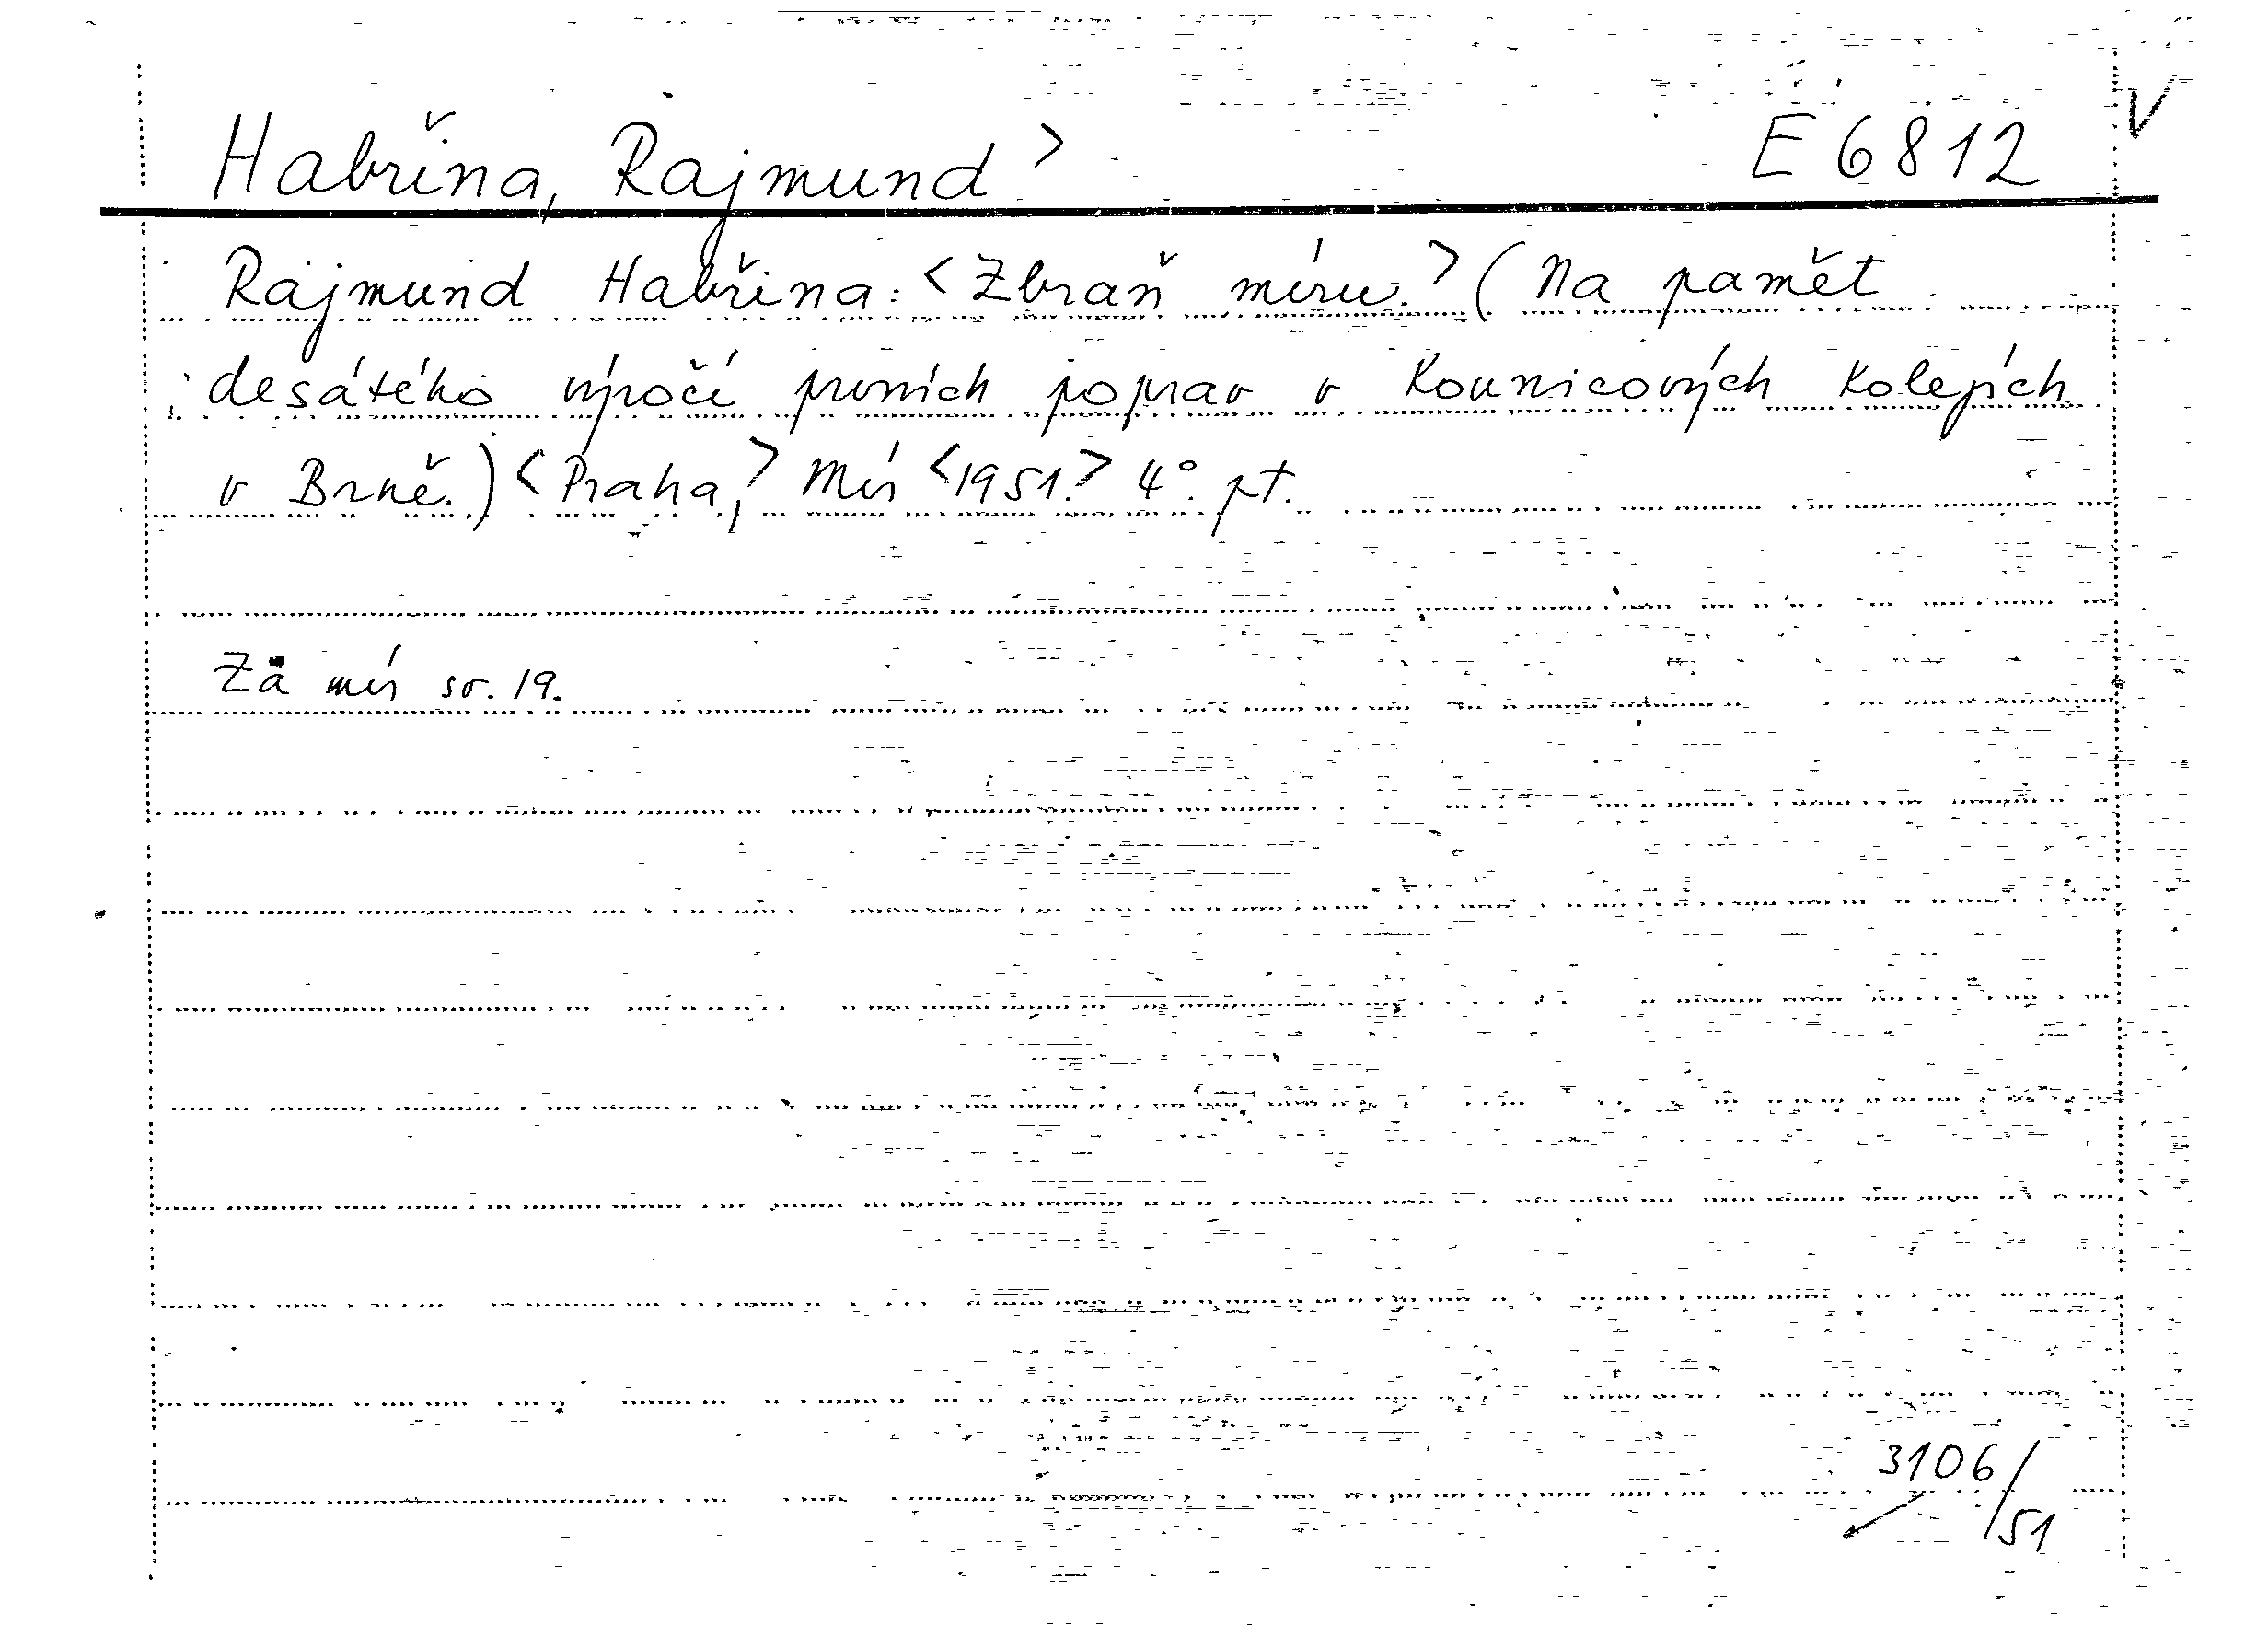 Habřina, Rajmund > E 6812 V
Rajmund Habřina: <Zbraň míru.> (Na pamět
desátého výročí prvních poprav v Kounicových kolejích
v Brně.) <Praha,> Mír <1951.> 4°. pt.
Za mír sv. 19.
3106/
51